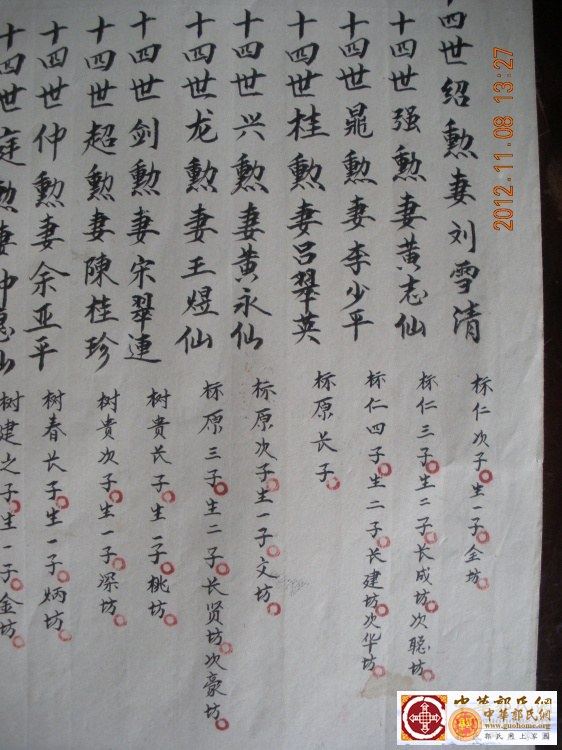 十四世绍勲妻刘雪清
标仁次子生一子全坊
十四世强勲妻黄志仙
标仁三子生二子长成坊次聪坊
十四世晁勲妻李少平
标仁四子生二子长建坊次华坊
十四世桂勲妻吕翠英
标原长子
十四世兴勲妻黄永仙
标原次子生一子文坊
十四世龙勲妻王煜仙
标原三子生二子长贤坊次豪坊
十四世剑勲妻宋翠連
树贵长子生一子桃坊
十四世超勲妻陳桂珍
树贵次子生一子深坊
十四世仲勲妻余亚平
树春长子生一子炳坊
十四世庭勲妻
树建之子生一子金坊
2012.11.08 13:27
中華郭氏網
中華郭氏網
www.guohome.org
郭氏網上家園